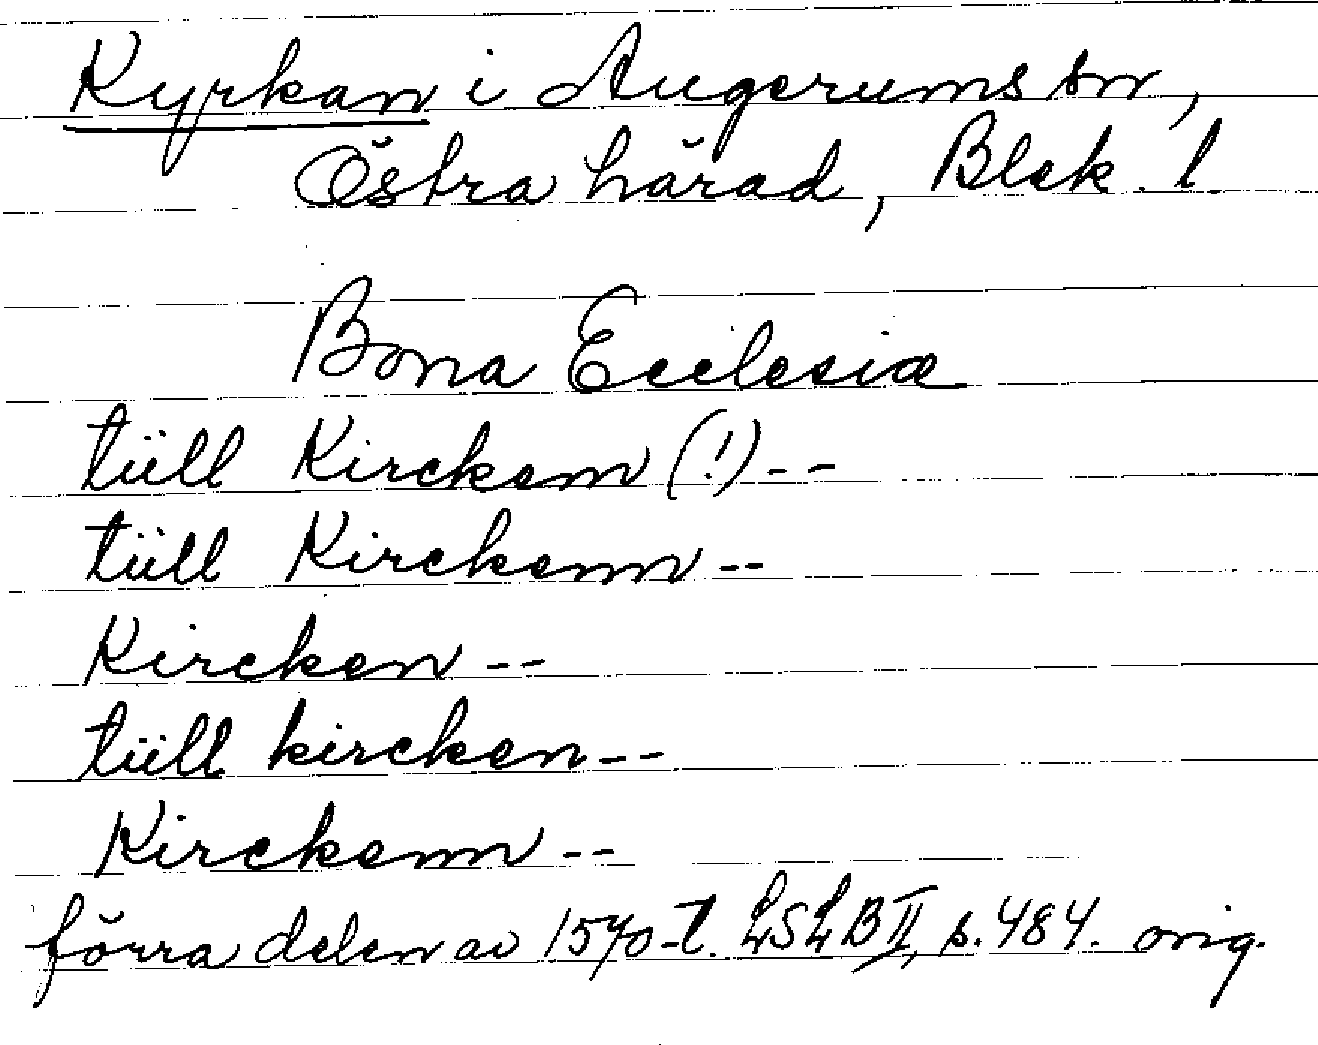 Kyrkan i Augerums sn,
Östra härad, Blek. l.
Bona Ecclesiæ
tüll Kirckem (!) --
tüll Kirckenn --
Kircken --
tüll kircken --
Kirckenn --
förra delen av 1570-t. LSLB II, s. 484. orig.